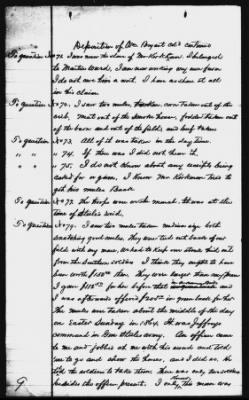 Deposition of Wm Bryant col'd continued
To question No 71 I am now the slave of Mr Kirkman. I belonged
to Master Ward, I am now working my own farm
I do not owe him a cent. I have no share at all
in his claim
To question No 72. I saw two mules taken, corn taken out of the
crib, meat out of the smoke house, fodder taken out
of the barn and out of the fields, and beef taken
To question No 73. All of it was taken in the day time.
" " " 74. If there was I did not them it.
" " " 75. I do not know about any receipts being
asked for or given, I know Mr Kirkman tried to
get his mules Back
To question No 77 The troops were on the march. It was at this
time of Steeles raid.
To question No 79. I saw two mules taken medium size both
smashing good mules, they were tied out back of our
field with my man, trusted to keep our stock hid out
from the Southern soldiers I think they ought to have
been worth $150 00 then. They were larger than
I gave $150 00 for her before that
was afterwards offered $200 00 in green backs for her
The mules were taken about the middle of the day
on Easter Sunday in 1864. It was Jeffreys
command in Gen Steeles army. An officer came
to me and jobbed at me with his sword and told
me to go and show the horses, and I did so. He
told the soldiers to take them. There was only two
besides the officer present. I only, this man was
9